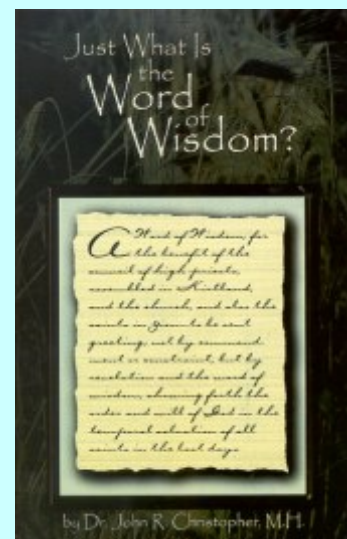 Just What Is
the
Word
of
Wisdom?
A Word of Wisdom, for
the benefit of the
council of high priests,
assembled in Kirtland,
and the church, and also the
saints in Zion to be sent
greeting; not by command-
ment or constraint, but by
revelation and the word of
wisdom, showing forth the
order and will of God in the
temporal salvation of all
saints in the last days
by Dr. John R. Christopher, M.H.